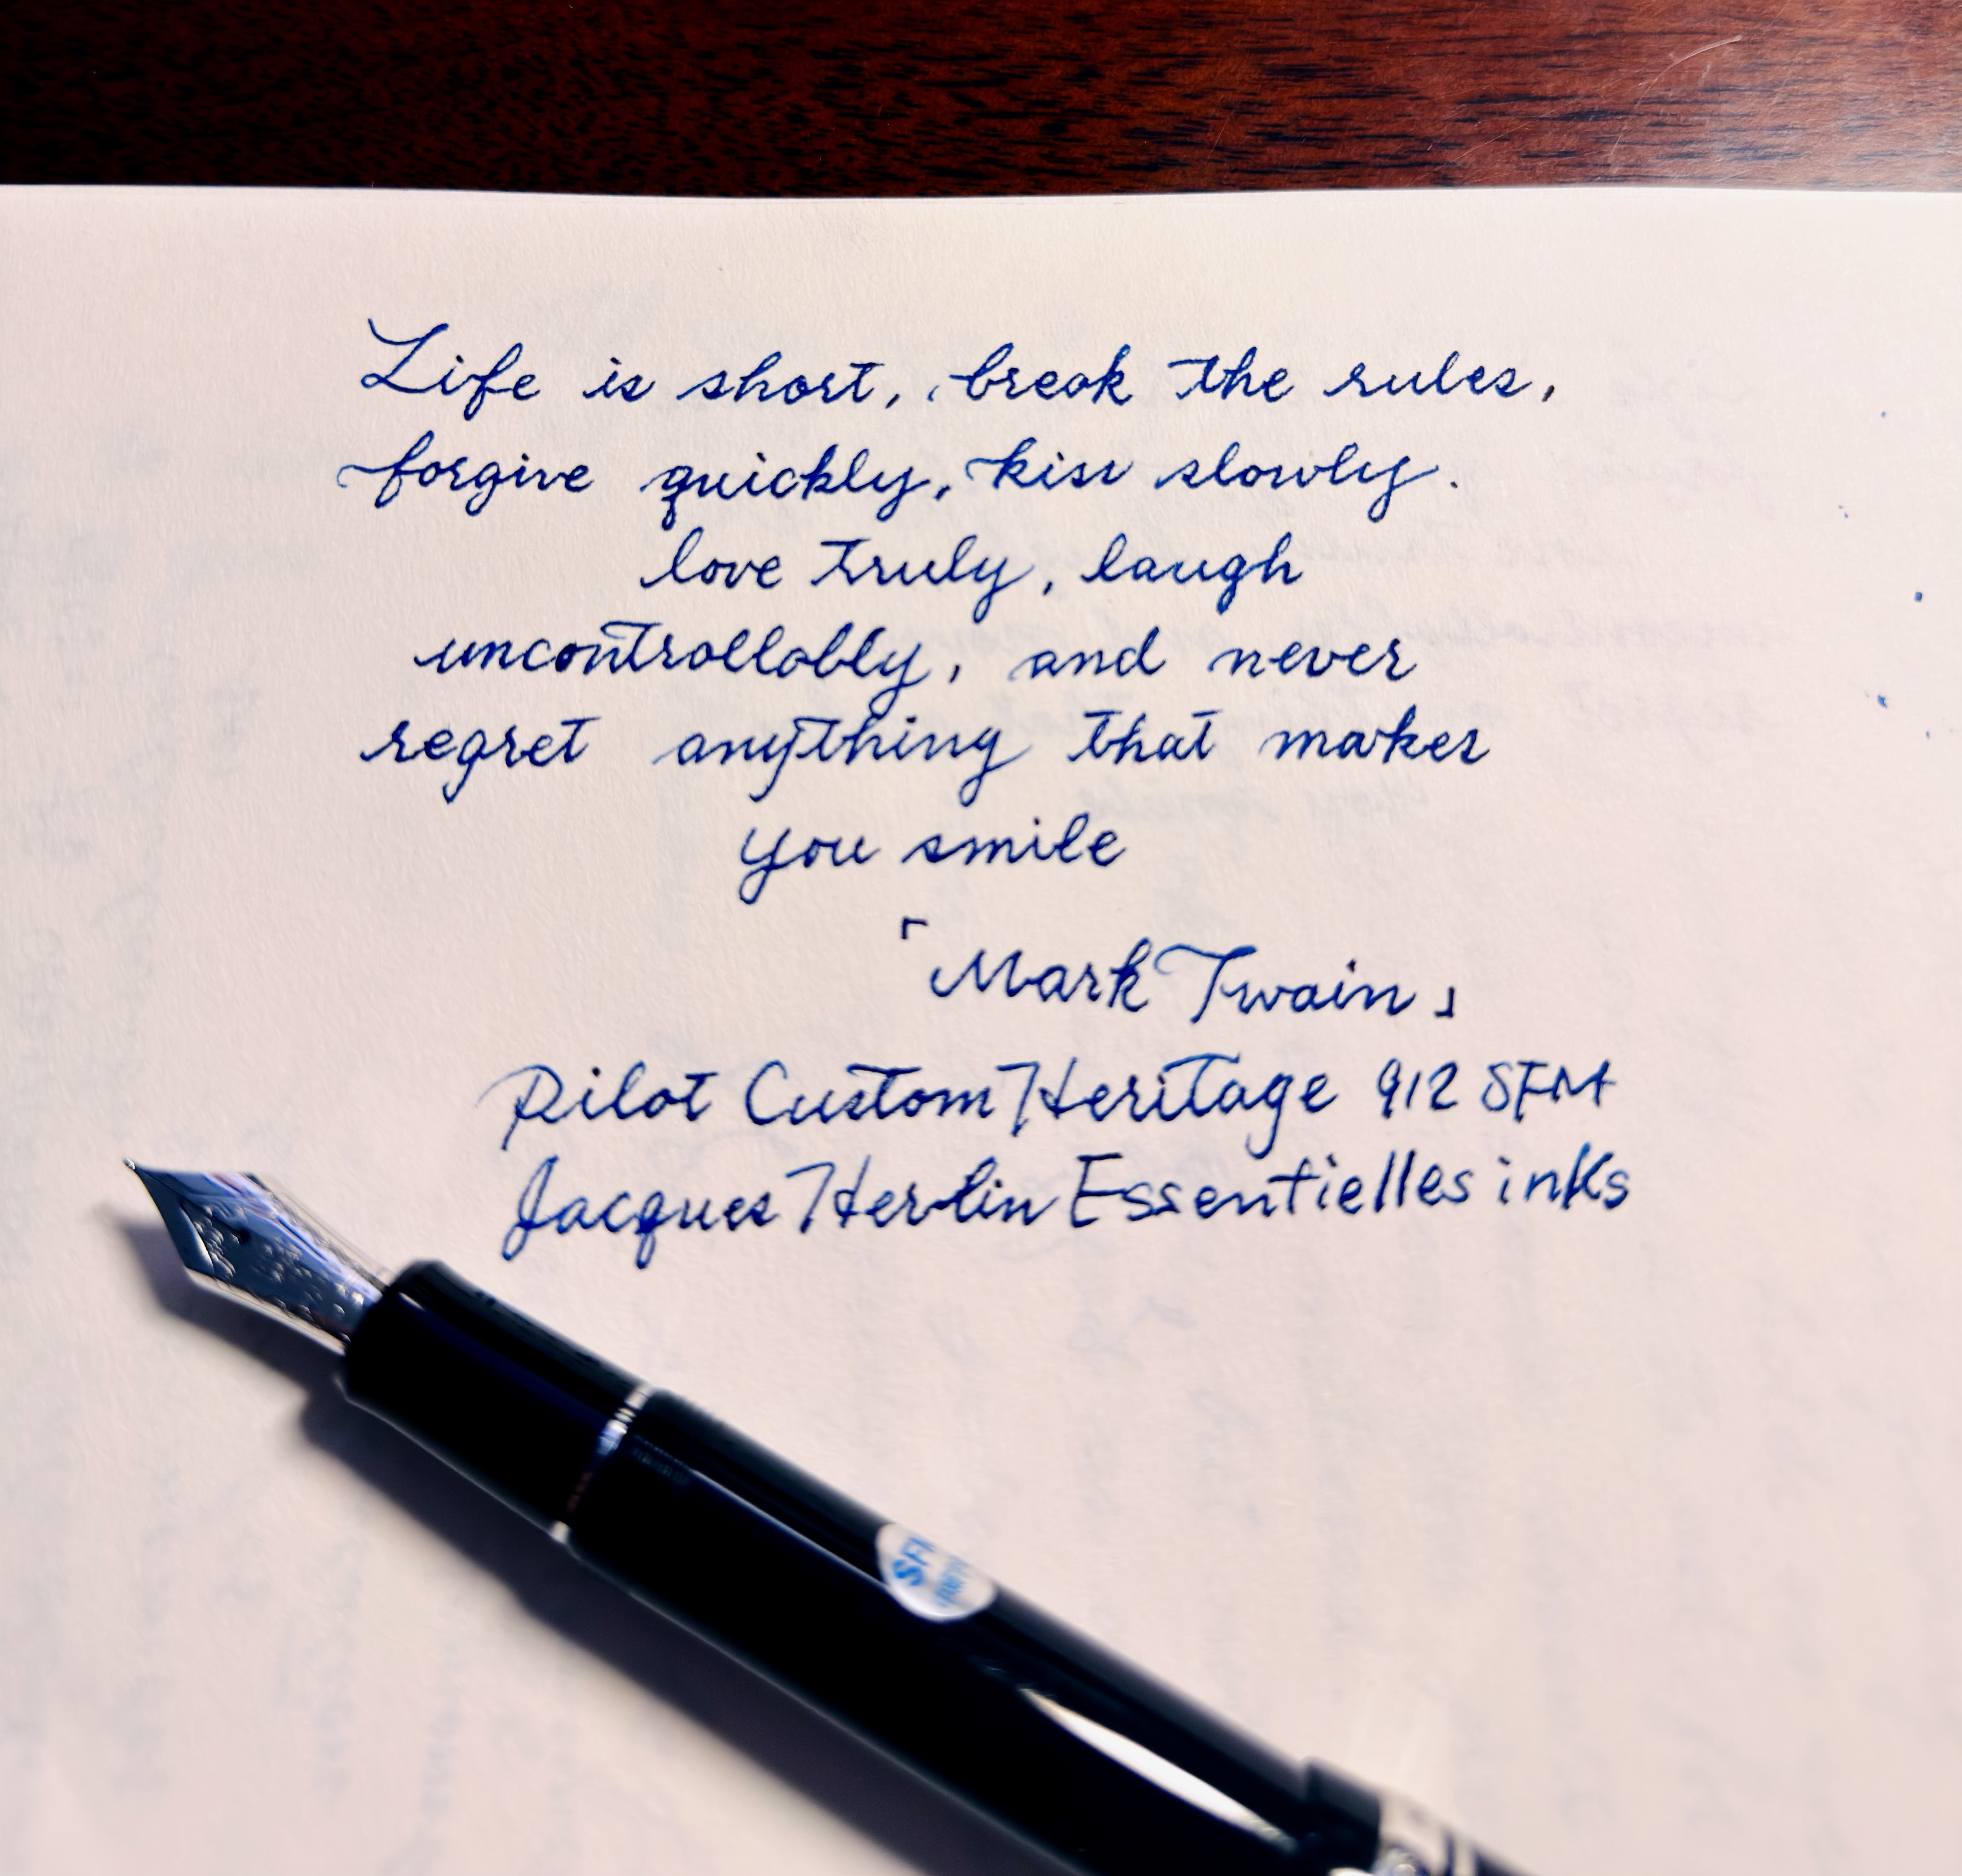 Life is short, break the rules,
forgive quickly, kiss slowly.
love truly, laugh
uncontrollably, and never
regret anything that makes
you smile
「Mark Twain」
Pilot Custom Heritage 912 SFM
Jacques Herbin Essentielles inks